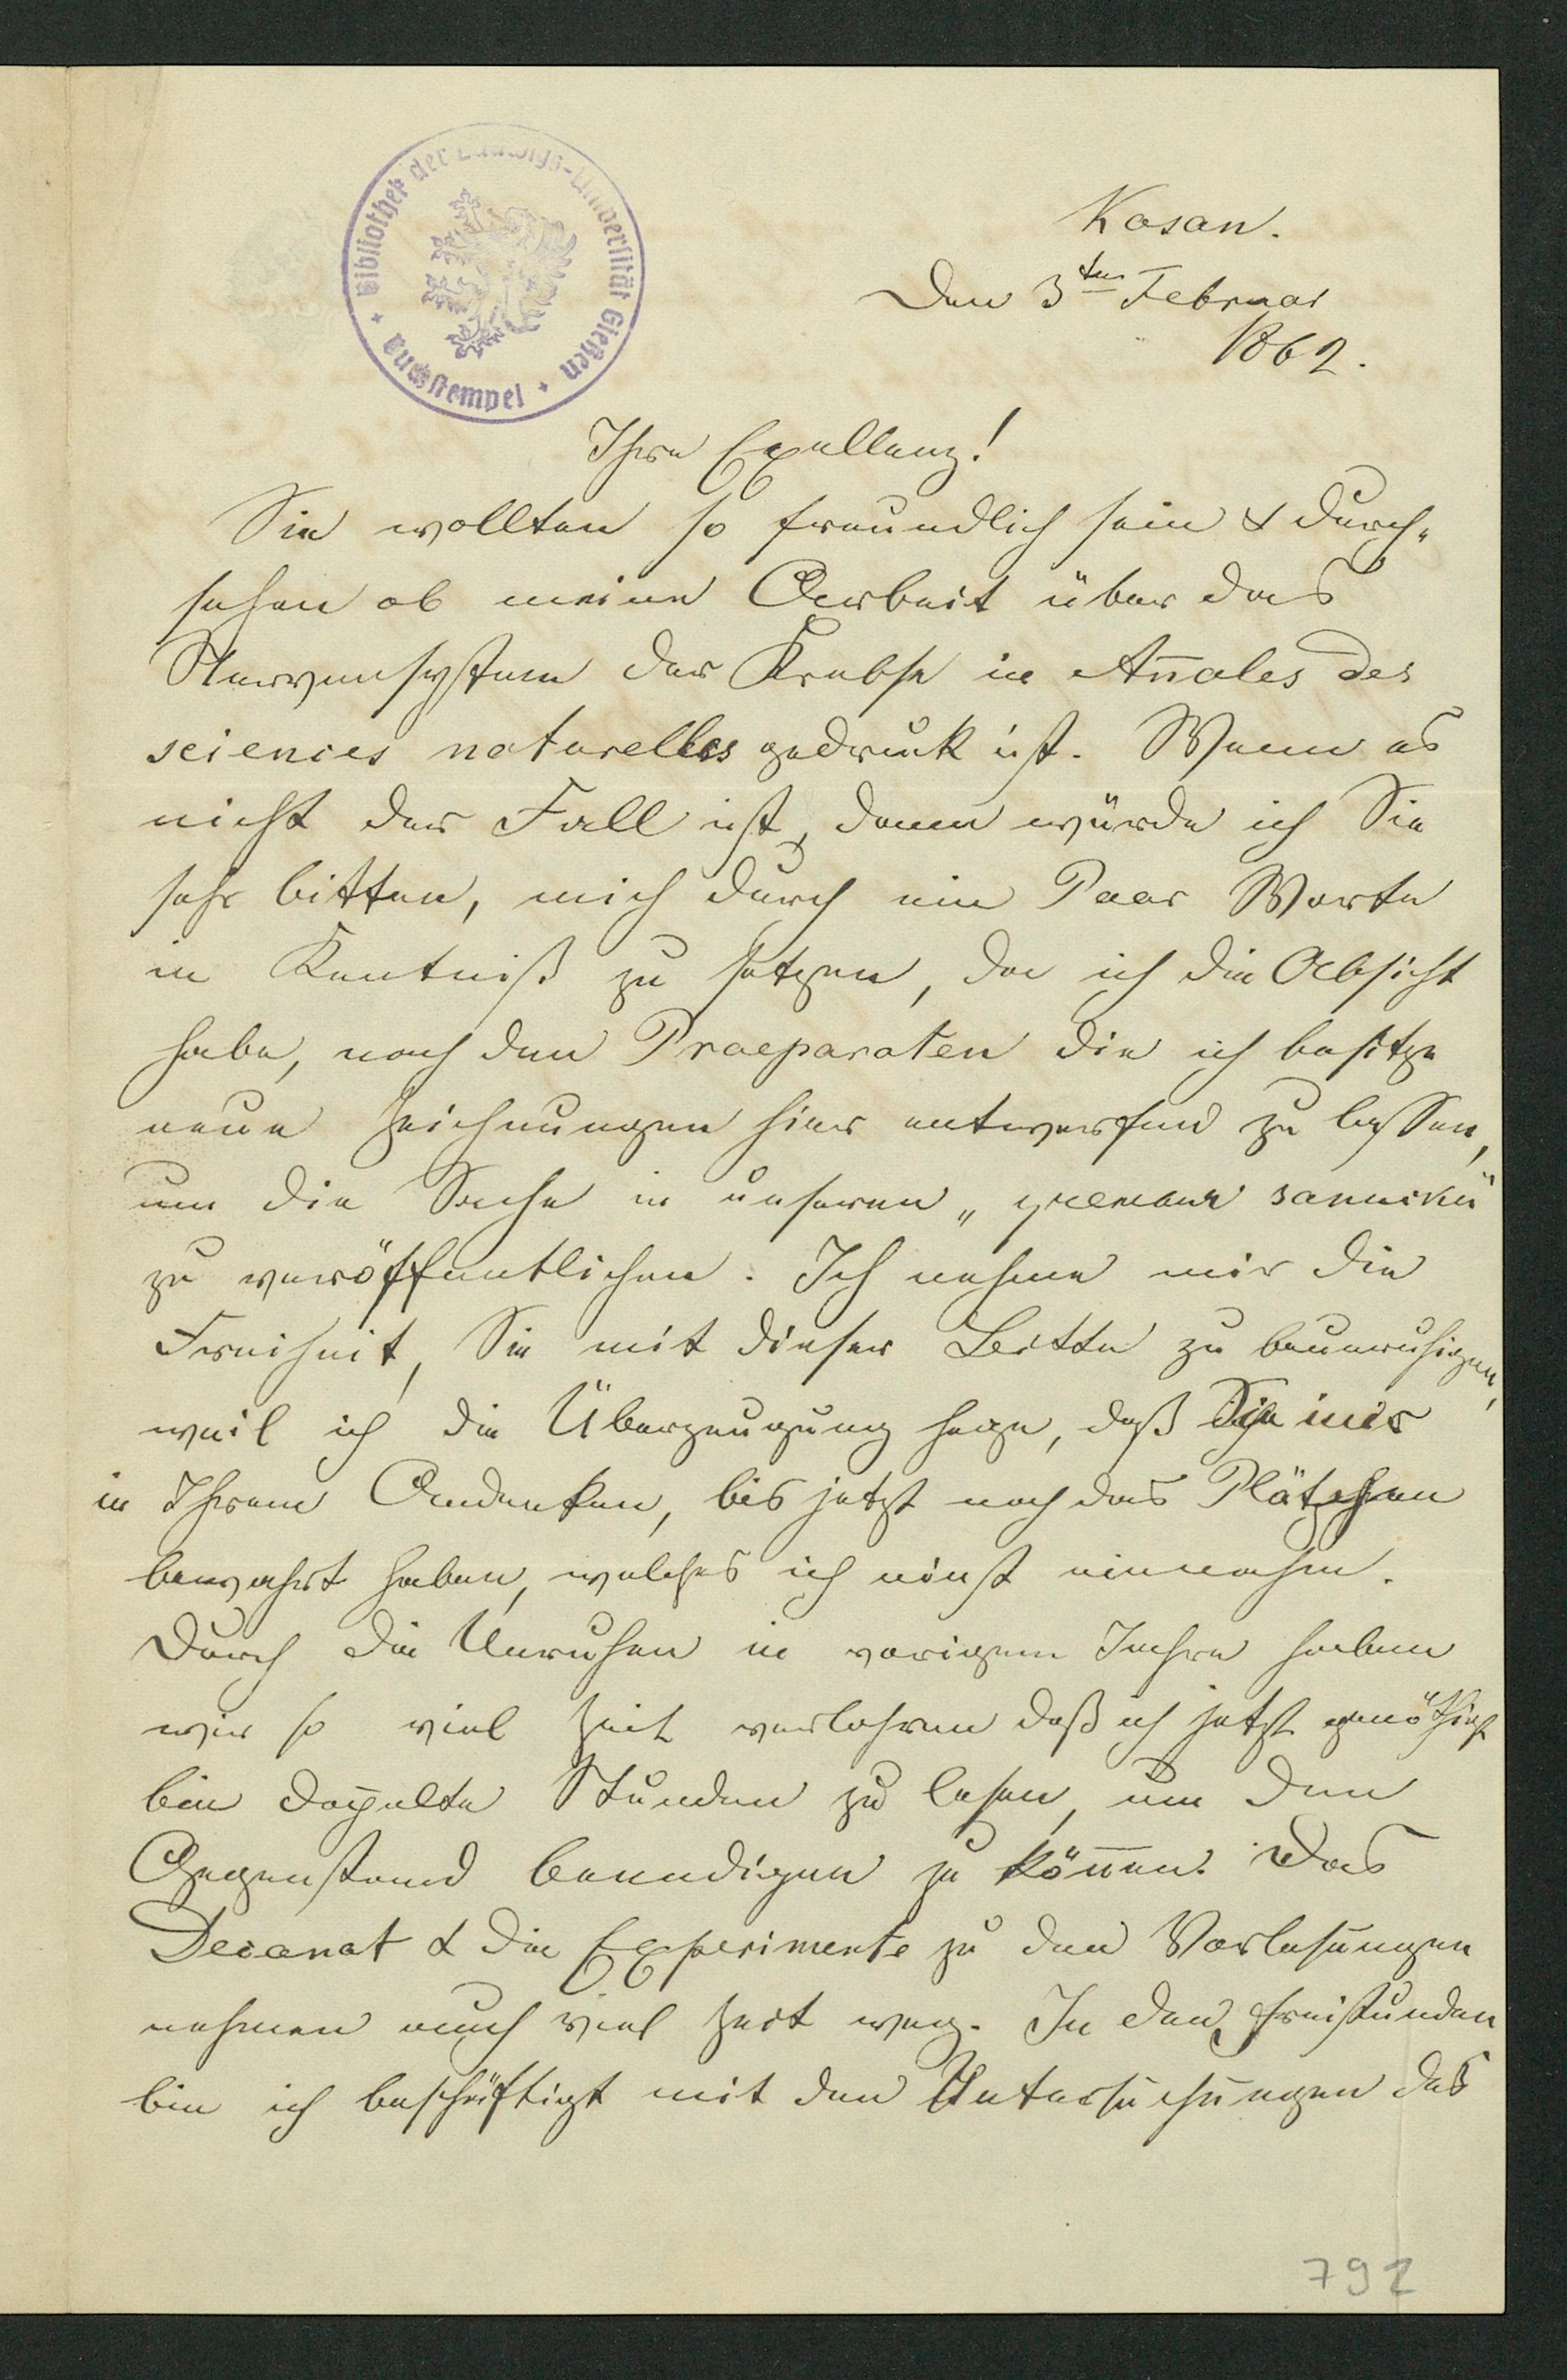 Bibliothek der Ludwigs-Universität Gießen
Buchstempel
Kasan.
Den 3ten Februar
1862.
Ihre Exellenz!
Sie wollten so freundlich sein & durch-
sehen ob meine Arbeit über das
Nervensystem der Krebse in An̅ales des
sciences naturelles gedruck ist. Wenn es
nicht der Fall ist, dann würde ich Sie
sehr bitten, mich durch ein Paar Worte
in Kentniß zu setzen, da ich die Absicht
habe, nach den Praeparaten die ich besitze
neue Zeichnungen hier entwerfen zu lassen,
um die Sache in unseren „ ученыи записки"
zu veröffentlichen. Ich nehme mir die
Freiheit, Sie mit dieser Bitte zu beunruhigen,
weil ich die Überzeugung hege, daß Sie mir
in Ihrem Andenken, bis jetzt noch das Plätzchen
bewahrt haben, welches ich einst einnahm.
Durch die Unruhen in vorigem Jahre haben
wir so viel Zeit verlohren daß ich jetzt genöthigt
bin dop̅elte Stunden zu lesen, um den
Gegenstand beendigen zu kön̅en. Das
Decanat & die Experimente zu den Vorlesungen
nehmen auch viel Zeit weg. In den Freistunden
bin ich beschäftigt mit den Untersuchungen des
792